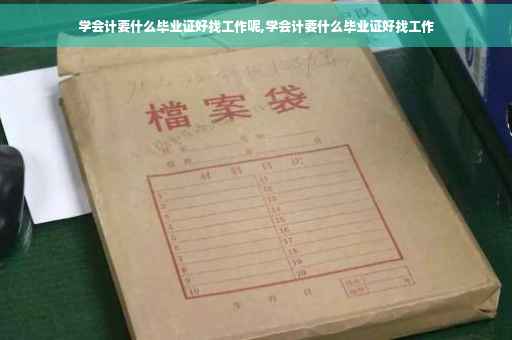 学会计要什么毕业证好找工作呢,学会计要什么毕业证好找工作
檔案袋
材料目次
1 11
2 12
3 13
4 14
5 15
6 16
7 17
8 18
9 19
10 20
年 月 日